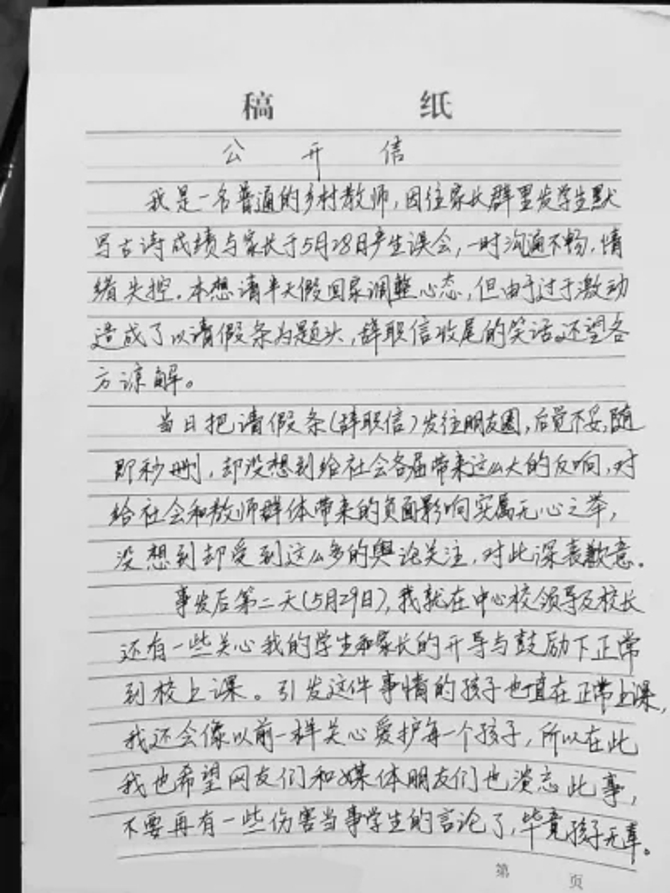 稿 纸
公开信
我是一名普通的乡村教师,因往家长群里发学生默
写古诗成绩与家长于5月28日产生误会,一时沟通不畅,情
绪失控。本想请半天假回家调整心态,但由于过于激动
造成了以请假条为题头,辞职信收尾的笑话。还望各
方谅解。
当日把请假条(辞职信)发往朋友圈,后觉不妥,随
即秒删,却没想到给社会各届带来这么大的反响,对
给社会和教师群体带来的负面影响实属无心之举,
没想到却受到这么多的舆论关注,对此深表歉意.
事发后第二天(5月29日),我就在中心校领导及校长
还有一些关心我的学生和家长的开导与鼓励下正常
到校上课。引发这件事情的孩子也一直在正常上课,
我还会像以前一样关心爱护每一个孩子,所以在此
我也希望网友们和媒体朋友们也淡忘此事,
不要再有一些伤害当事学生的言论了,毕竟孩子无辜。
第 页